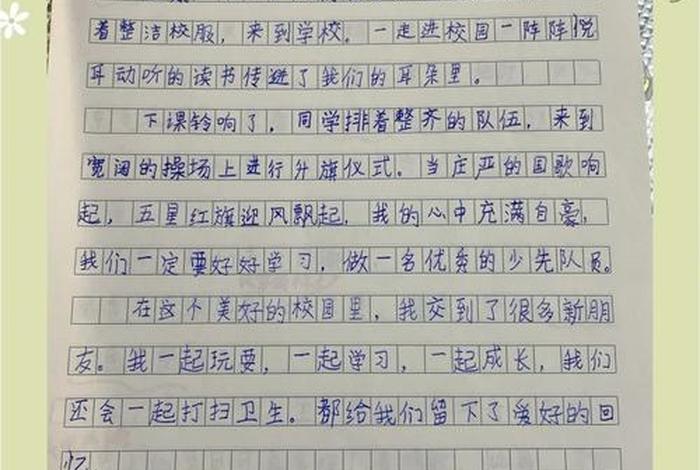 着整洁校服，来到学校。一走进校园一阵阵悦
耳动听的读书传进了我们的耳朵里。
下课铃响了，同学排着整齐的队伍，来到
宽阔的操场上进行升旗仪式。当庄严的国歌响
起，五星红旗迎风飘起，我的心中充满自豪，
我们一定要好好学习，做一名优秀的少先队员。
在这个美好的校园里，我交到了很多新朋
友。我一起玩耍，一起学习，一起成长，我们
还会一起打扫卫生。都给我们留下了爱好的回
忆